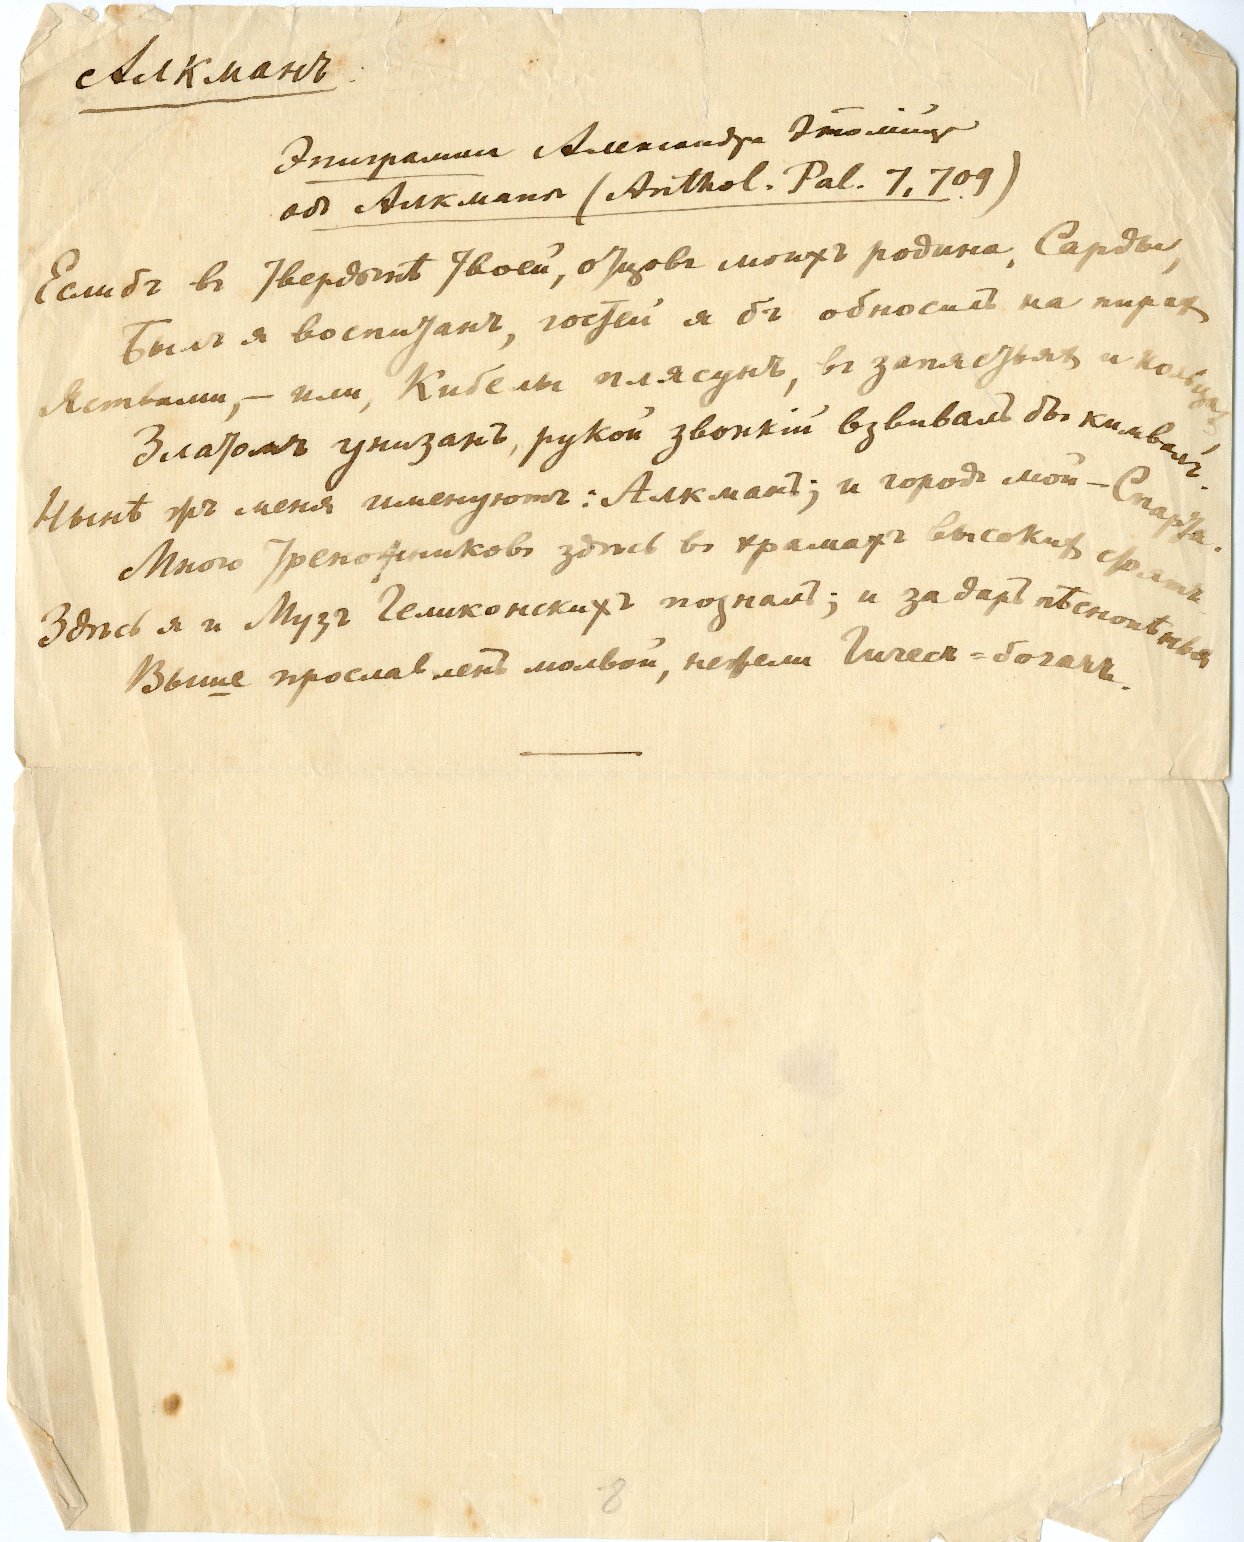 Алкманъ.
Эпиграмма Александра Этолійца
объ Алкманѣ (Anthol. Pal. 7, 709)
Еслибъ въ твердынѣ твоей, отцовъ моихъ родина, Сарды,
Былъ я воспитанъ, гостей я бъ обносилъ на пирах
Яствами, – или, Кибелы плясунъ, въ запястьях и кольцах,
Златомъ унизанъ, рукой звонкій взвивалъ бы кимвалъ.
Нынѣ жъ меня именуютъ: Алкманъ; и городъ мой – Спарта.
Много треножниковъ здѣсь въ храмахъ высоких святъ.
Здѣсь я и Музъ Геликонскихъ позналъ; и за даръ пѣснопѣнья
Выше прославленъ молвой, нежели Гигесъ=богачъ.
8